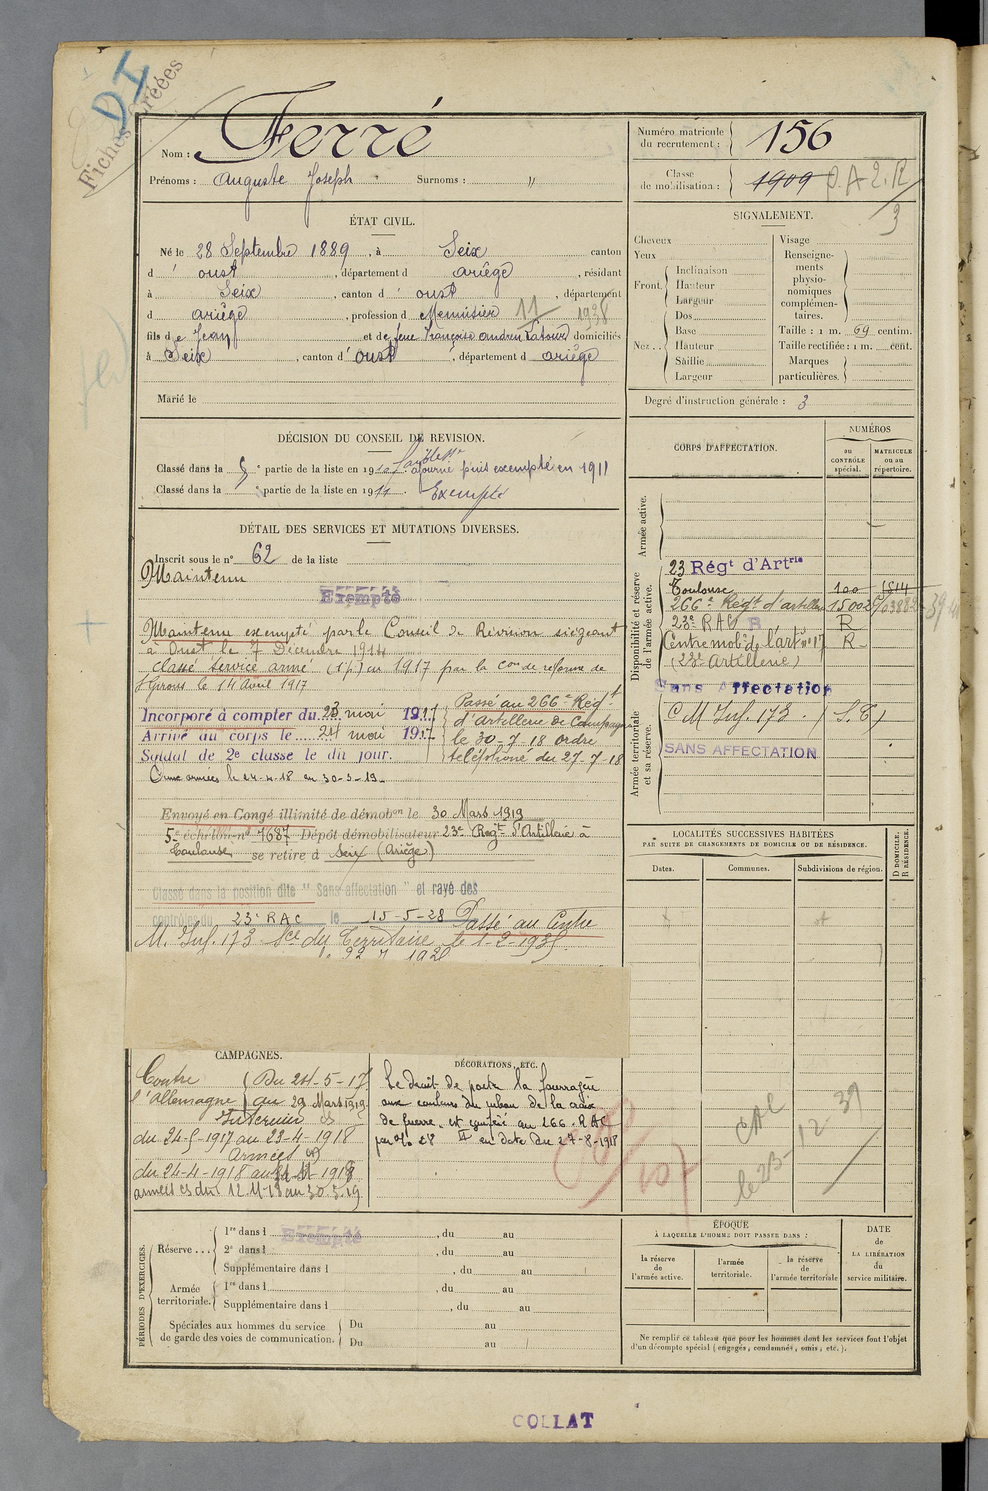 DI
Fiches Créées
Nom : Ferré
Prénoms : Auguste Joseph Surnoms : "
Numéro matricule du recrutement : 156
Classe de mobilisation : 1909 P.A 2. R
3
ÉTAT CIVIL.
Né le 28 Septembre 1889, à Seix canton
d' oust, département d ariège, résidant
à Seix, canton d' oust, département
d ariège, profession d Menuisier 11 1938
fils de Jean et de feue Françoise Andrieu Latour domiciliés
à Seix, canton d' oust, département d ariège
Marié le
SIGNALEMENT.
Cheveux
Yeux
Front. Inclinaison
Hauteur
Largeur
Nez .. Dos
Base
Hauteur
Saillie
Largeur
Visage
Renseignements physionomiques complémentaires.
Taille : 1 m. 69 centim.
Taille rectifiée : 1 m. cent.
Marques particulières.
Degré d'instruction générale : 3
DÉCISION DU CONSEIL DE REVISION.
Classé dans la 5e partie de la liste en 1910 faiblesse ajourné puis exempté en 1911
Classé dans la 5e partie de la liste en 1911. Exempté
DÉTAIL DES SERVICES ET MUTATIONS DIVERSES.
Inscrit sous le n° 62 de la liste
Maintenu
Exempté
Maintenu exempté par le Conseil de Révision siégeant
à Oust le 7 Décembre 1914
Classé service armé (1. p.) en 1917 par la Con de réforme de
St Girons le 14 avril 1917
Incorporé à compter du 23 mai 1917
Arrivé au corps le 24 mai 1917
Soldat de 2e classe le dit jour.
Passé au 266e Régt
d'Artillerie de Campagne
le 30-7-18 ordre
téléphoné du 27-7-18
Aux armées le 24-4-18 au 30-3-19
Envoyé en Congé illimité de démobon le 30 Mars 1919
5e échelon n° 1687 Dépôt démobilisateur 23e Régt d'Artillerie à
Toulouse se retire à Seix (Ariège)
Classé dans la position dite "Sans affectation" et rayé des
contrôles du 23e RAC le 15-5-28 Passé au Centre
M. Inf. 173 Sce du Territoire le 1-2-1935
CORPS D'AFFECTATION.
NUMÉROS
au CONTRÔLE spécial.
MATRICULE ou au répertoire.
Armée active.
Disponibilité et réserve de l'armée active.
23 Régt d'Artrie
Toulouse 100 1814
266e Régt d'artillerie 15002
23e RAC R R
Centre mob. de l'artie n° 17 R
(23e Artillerie)
Sans Affectation
Armée territoriale et sa réserve.
C M Inf. 173. (S. T)
SANS AFFECTATION
LOCALITÉS SUCCESSIVES HABITÉES
PAR SUITE DE CHANGEMENTS DE DOMICILE OU DE RÉSIDENCE.
Dates. Communes. Subdivisions de région.
D DOMICILE. R RÉSIDENCE.
CAMPAGNES.
Contre l'Allemagne Du 24-5-17
au 29 Mars 1919
Intérieur CS
du 24-5-1917 au 23-4-1918
Armées CD
du 24-4-1918 au
armées CS du 12.11.18 au 30.3.19
DÉCORATIONS, ETC.
Le droit de porter la fourragère
aux couleurs du ruban de la croix
de guerre est conféré au 266. RAC
par O/o 28 II en date du 27-8-1918
CAC
le 23-12 39
PÉRIODES D'EXERCICES.
Réserve ... 1re dans l Exempté, du au
2e dans l, du au
Supplémentaire dans l, du au
Armée territoriale. 1re dans l, du au
Supplémentaire dans l, du au
Spéciales aux hommes du service de garde des voies de communication. Du au
Du au
ÉPOQUE
À LAQUELLE L'HOMME DOIT PASSER DANS :
la réserve de l'armée active.
l'armée territoriale.
la réserve de l'armée territoriale
DATE de LA LIBÉRATION du service militaire.
Ne remplir ce tableau que pour les hommes dont les services font l'objet
d'un décompte spécial (engagés, condamnés, omis, etc.).
COLLAT